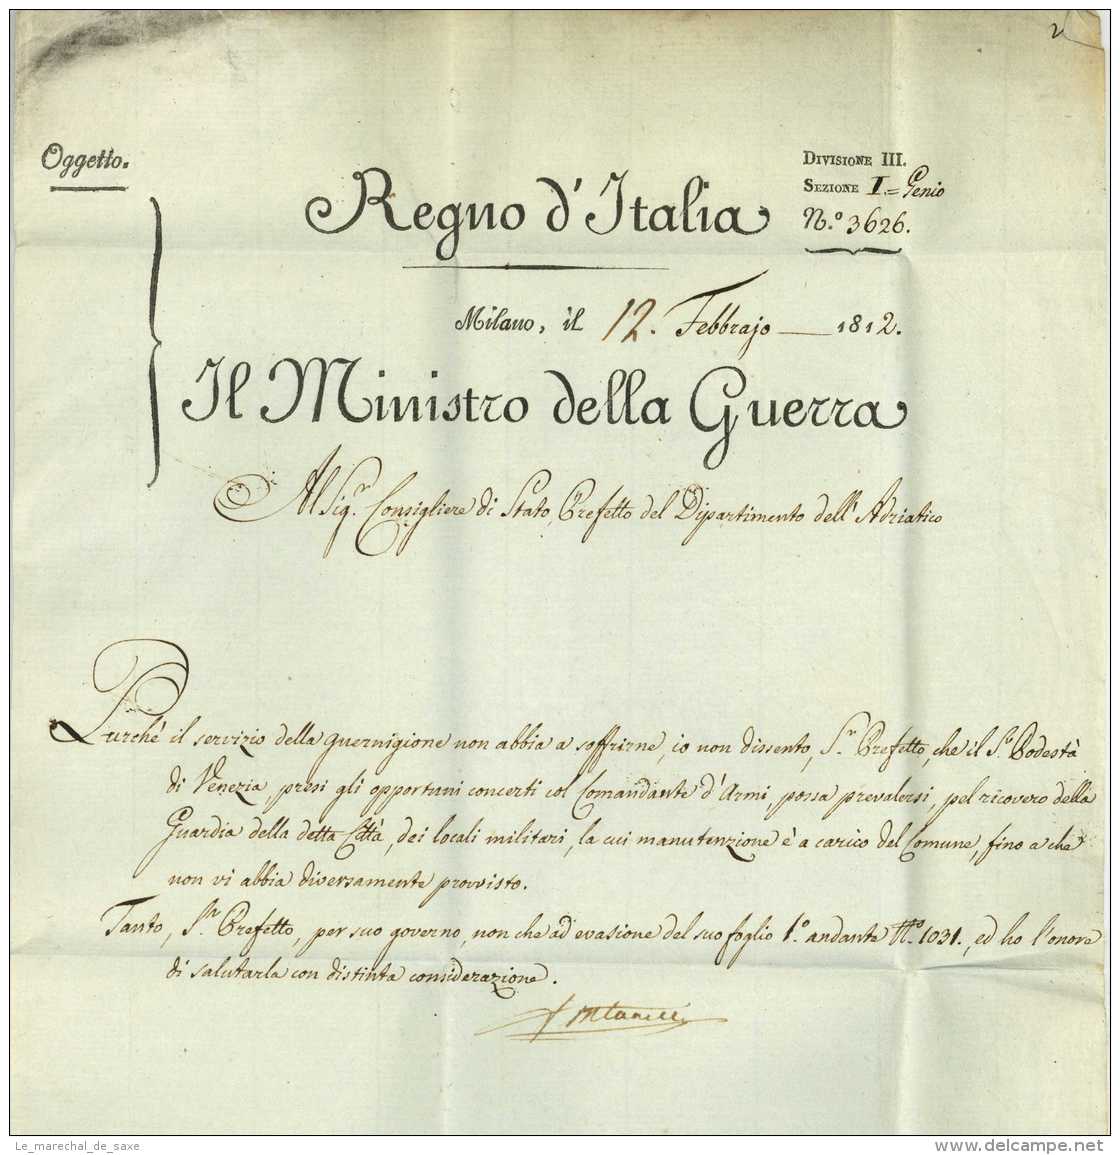 2
Oggetto.
Divisione III.
Sezione I.= Genio
N.º 3626.
Regno d'Italia
Milano, il 12. Febbrajo — 1812.
Il Ministro della Guerra
Al Sig.r Consigliere di Stato Prefetto del Dipartimento dell'Adriatico
Purchè il servizio della guernigione non abbia a soffrirne, io non dissento, S.r Prefetto, che il S.r Podestà
di Venezia, presi gli opportuni concerti col Comandante d'Armi, possa prevalersi, pel ricovero della
Guardia della detta Città, dei locali militari, la cui manutenzione è a carico del Comune, fino a che
non vi abbia diversamente provvisto.
Tanto, S.r Prefetto, per suo governo, non che ad evasione del suo foglio 1.º andante N.º 1031., ed ho l'onore
di salutarla con distinta considerazione.
Fontanelli
Le_marechal_de_saxe
www.delcampe.net